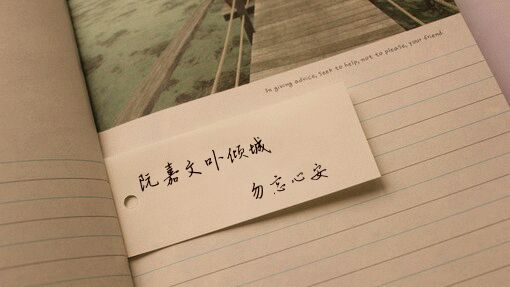 In giving advice, seek to help, not to please, your friend.
阮嘉文卟倾城
勿忘心安